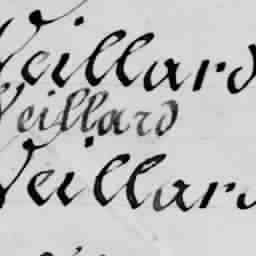 Veillard
Veillard
Veillard